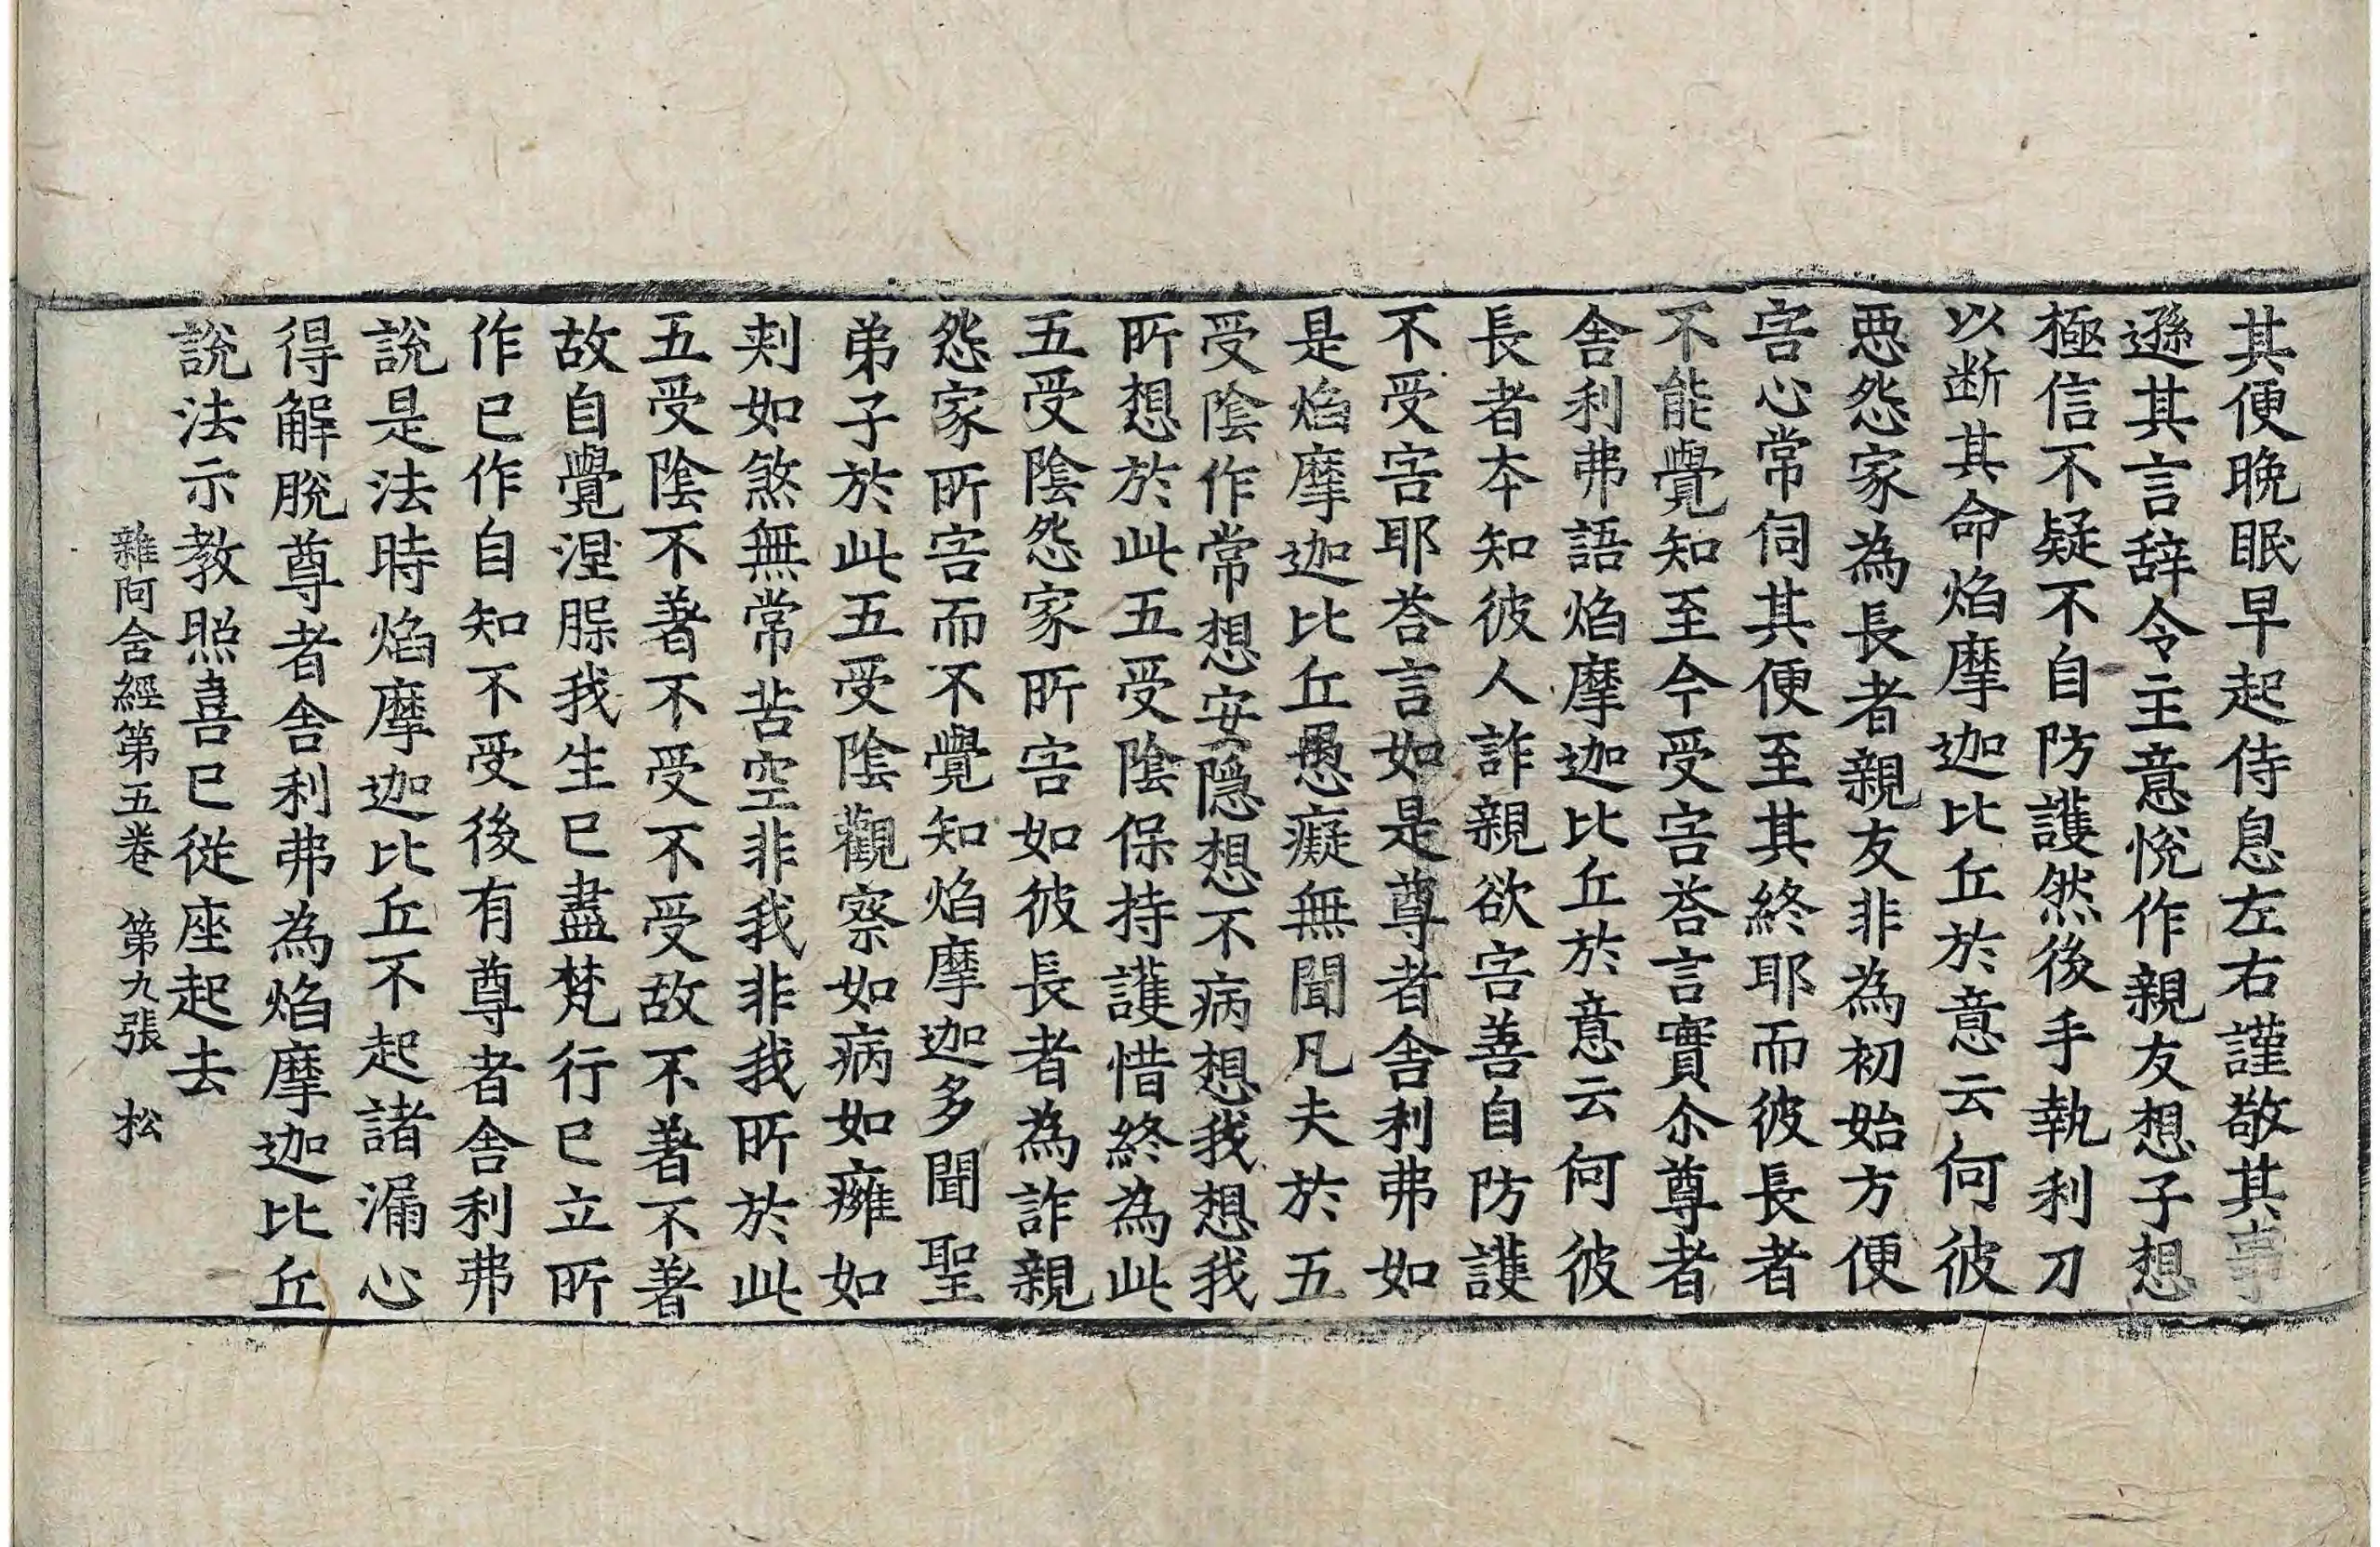 其便晩眠早起侍息左右謹敬其事
遜其言辞令主意悅作親友想子想
極信不疑不自防護然後手執利刀
以断其命焰摩迦比丘於意云何彼
惡怨家為長者親友非為初始方便
害心常伺其便至其終耶而彼長者
不能覺知至今受害荅言實尒尊者
舎利弗語焰摩迦比丘於意云何彼
長者本知彼人詐親欲害善自防護
不受害耶荅言如是尊者舎利弗如
是焰摩迦比丘愚癡無聞凡夫於五
受陰作常想安隱想不病想我想我
所想於此五受陰保持護惜終為此
五受陰怨家所害如彼長者為詐親
怨家所害而不覺知焰摩迦多聞聖
弟子於此五受陰觀察如病如癰如
刾如煞無常苦空非我非我所於此
五受陰不著不受不受故不著不著
故自覺涅膎我生已盡梵行已立所
作已作自知不受後有尊者舎利弗
說是法時焰摩迦比丘不起諸漏心
得解脫尊者舎利弗為焰摩迦比丘
說法示教照喜已從座起去
雜阿含經第五卷 第九張 松